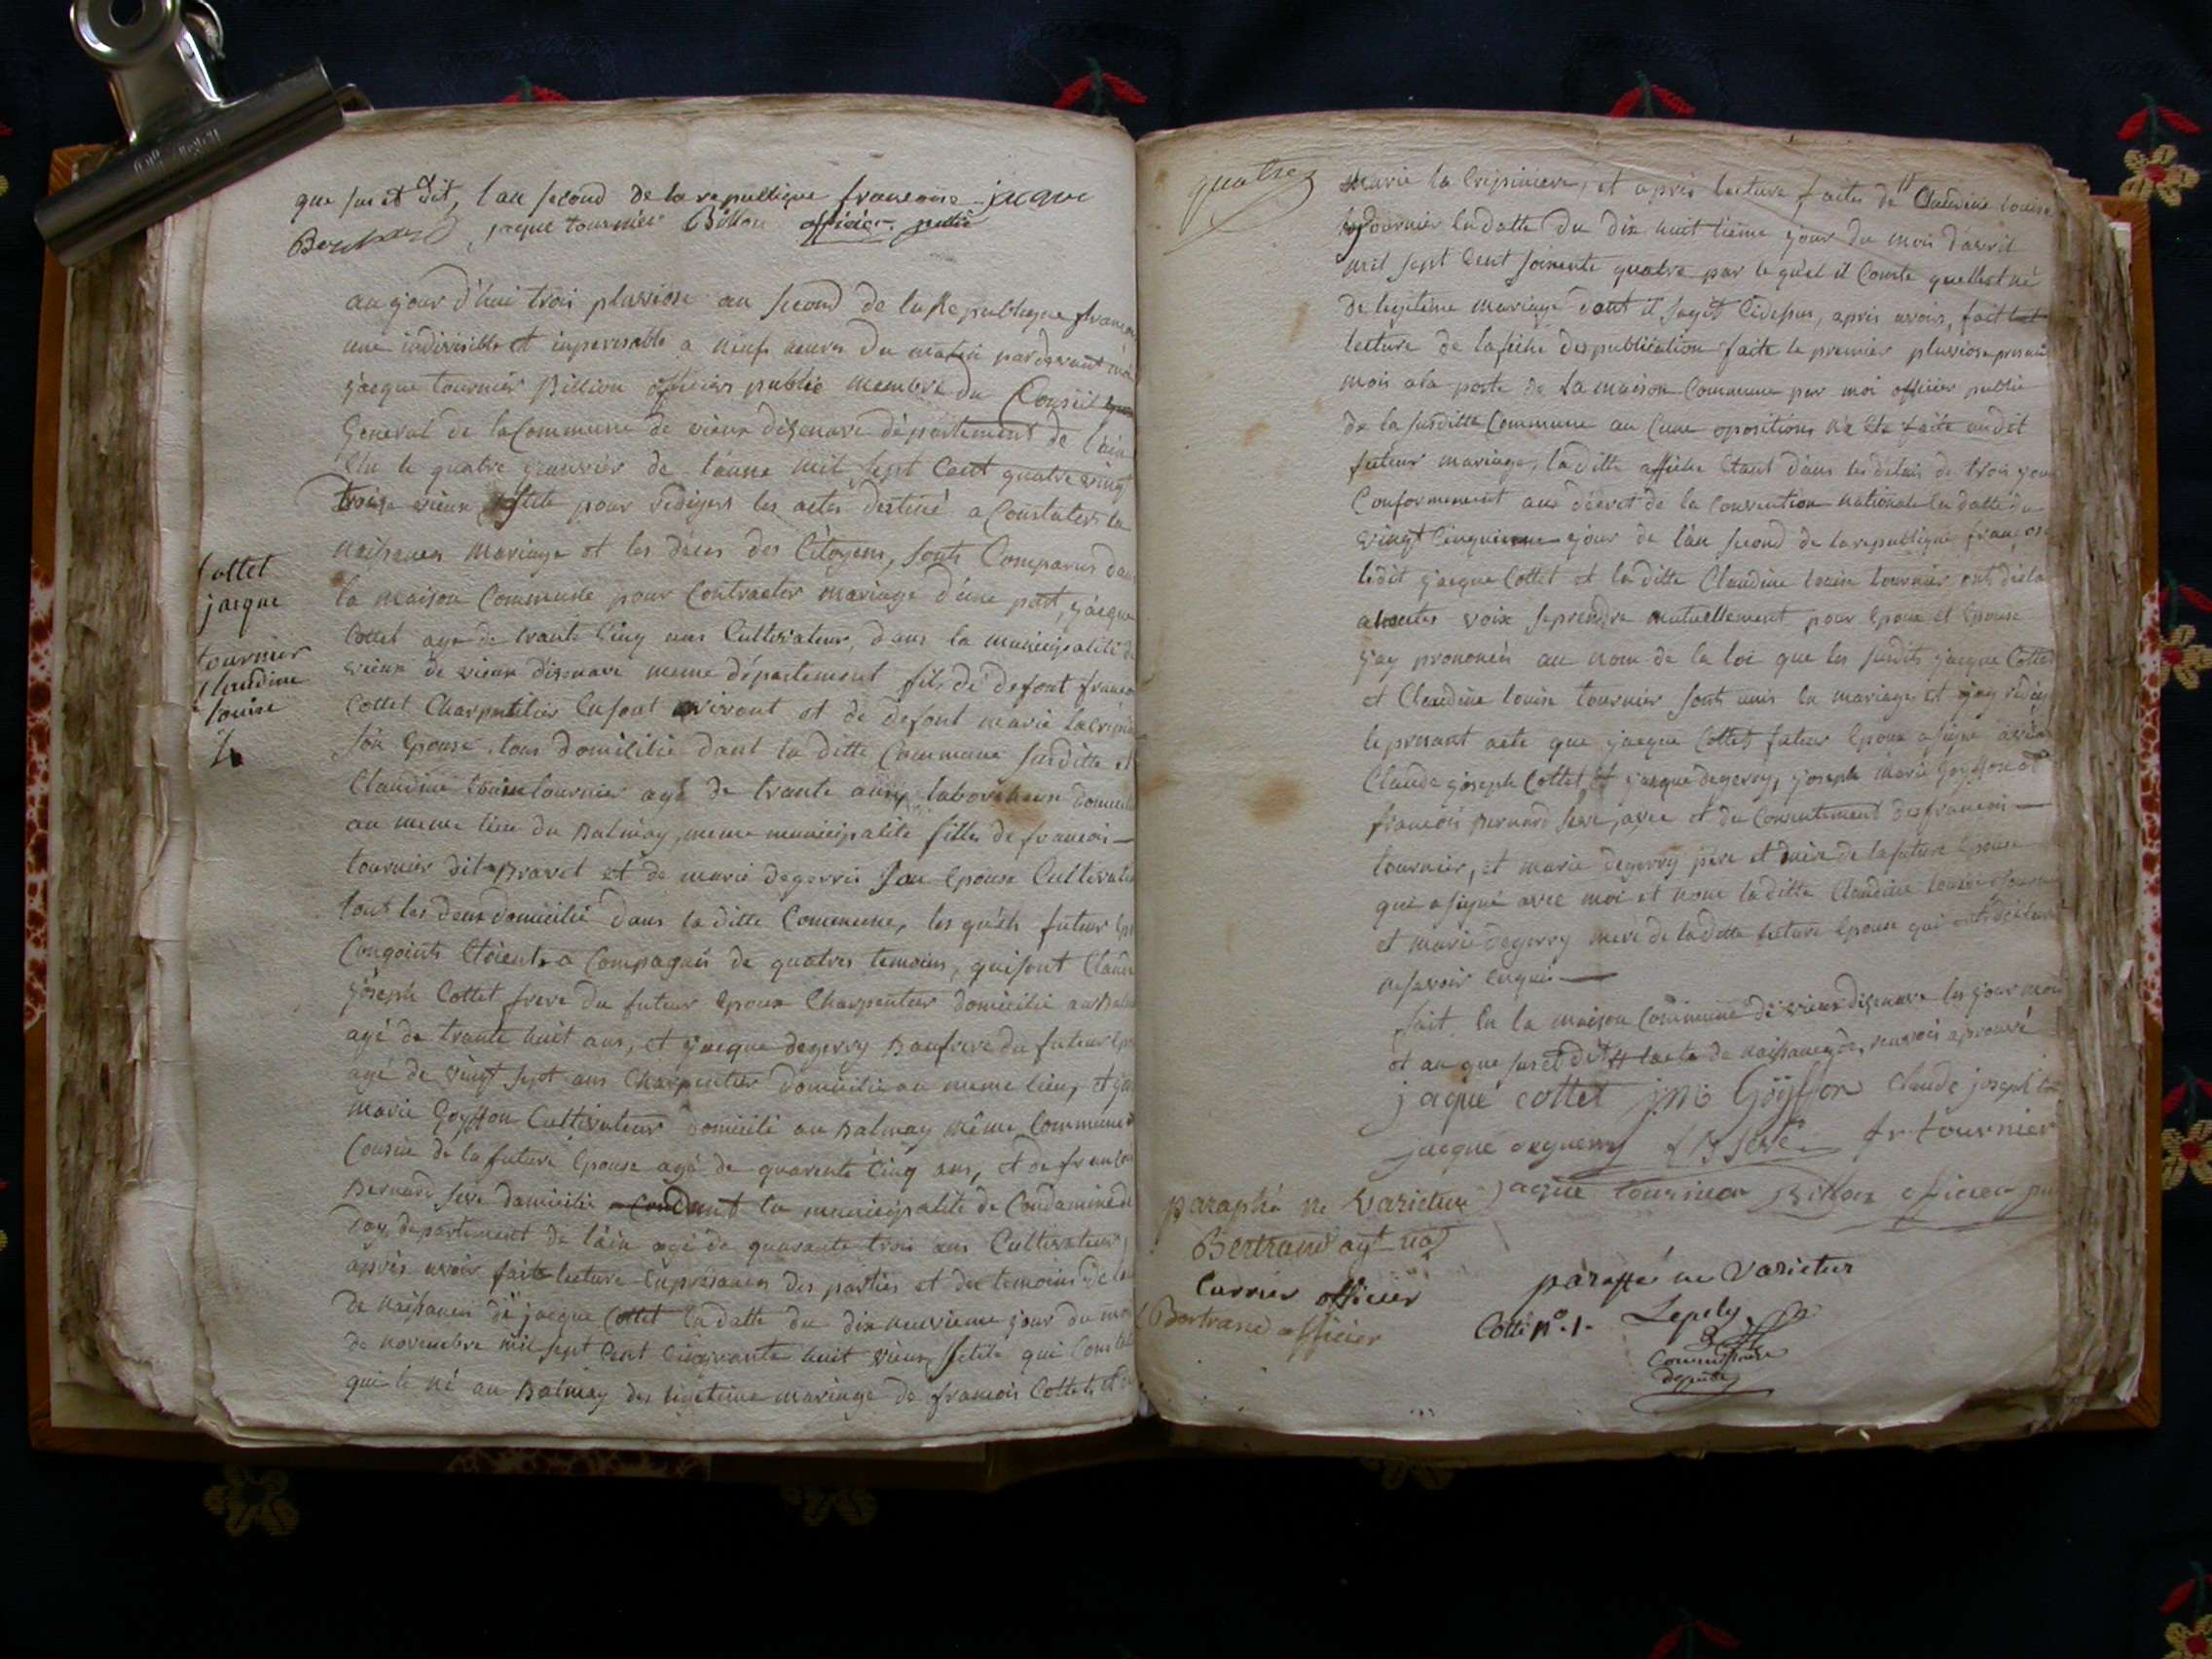 que sus et dit, l'an second de la republique francoise jacque
jacque tournier Billon officier public
au jour d'hui trois pluviose an second de la Republique
une indivisible et a neuf heures du matin pardevant
jacque tournier Billion officier public membre du Conseil
General de la Commune de vieux disenave département de l'ain
Elu le quatre janvier de l'anne mil sept Cent quatre vingt
treize vieux stile pour rediger les actes destiné a Constater la
naissances mariage et les déces des Citoyens, sonts Comparus dans
la maison Commune pour Contracter mariage d'une part, jacque
Cottet age de trante Cinq ans Cultivateur, dans la municipalité de
vieux de vieux disenave meme département fils de defont
Cottet Charpentier vivant et de defont marie
son Epouse, tous domicilie dant la ditte Commune susditte et
Claudine louise tournier agé de trante ans
au meme lieu du Balmay, meme municipalité fille de francois
tournier dit Bravet et de marie degerri son Epouse
tout les deux domicilié dans la ditte Commune, les quels futur
Conjoints Etoients a Compagnés de quatres temoins, qui sont
joseph Cottet frere du futeur Epoux Charpenteur domicilié au
agé de trante huit ans, et jacque degerry Baufrere du futeur
agé de vingt sept ans Charpentier domicilié au meme lieu, et
marie Goyffon Cultivateur domicilié au Balmay même Commune
Cousin de la future Epouse agé de quarente Cinq ans, et de
Bernard seve domicilie la municipalité de Condamine
departement de l'ain agé de quarante trois ans Cultivateur,
après avoir faite lecture Enprésances des parties et des temoins de
de naissances de jacque Cottet En datte du dix neuvieme jour du
de novembre mil sept Cent Cinquante huit vieux stile qui
qui le né au Balmay des legitime mariage de francois Cottet, et
Cottet
jacque
tournier
Claudine
louise
quatre
marie la Crepiniere, et après lecture faites de Claudine louise
tournier En datte du dix huit tième jour du mois d'avril
mil sept Cent soixente quatre par le quel il Conste quelle est né
de legitime mariage dont il sagit Cidessus, après avoir, fait
lecture de la fiche des publication faite le premier pluviose
mois a la porte de la maison Commune par moi officier public
de la susditte Commune au Cune opositions n'a Eté faite audit
futeur mariage, la ditte affiche Etant dans les delais de trois
Conformement aux décret de la Convention nationale En datte du
vingt Cinquieme jour de l'an second de la republique
ledit jacque Cottet et la ditte Claudine louise tournier
a hautes voix seprendre mutuellement pour Epoux et Epouse
j'ay prononcés au nom de la loi que les susdits jacque Cottet
et Claudine louise tournier sonts unis En mariage et j'ay
le presant acte que jacque Cottet futeur Epoux a signé
Claude joseph Cottet, et jacque degerry, joseph marie Goyffon et
francois Bernard seve, avec et du Consentement des francois
tournier, et marie degerry pere et mere de la future Epouse
que a signé avec moi et non la ditte Claudine louise
et marie degerry mere de la ditte future Epouse qui
ne savoir
fait En la maison Commune de vieux disenave les jour mois
et an que sus et dit
jaque cottet j m Goyffon Claude joseph
jacque deguerry f B seve fr tournier
jaque tournier Billon officier
paraphé ne Varietur
Bertrand agt
Carrier officier
Bertrand officier
paraffé ne Varietur
Cotté n°. 1.
Commissaire
député